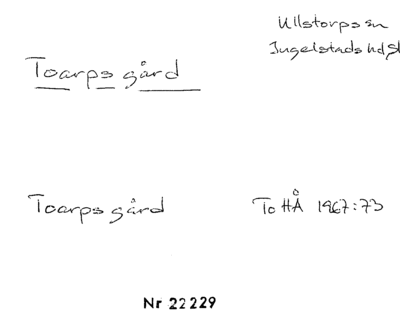 Ullstorps sn
Ingelstads hd Sk
Toarps gård
Toarps gård To HÅ 1967:73
Nr 22229